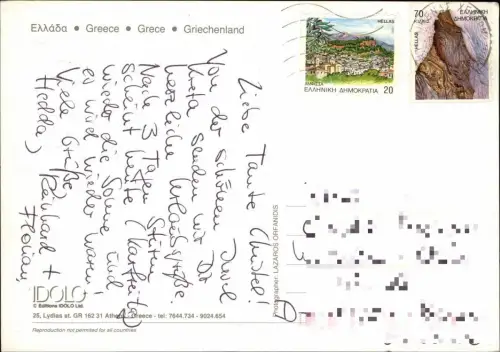 Ελλάδα • Greece • Grece • Griechenland
HELLAS
ΛΑΜΙΑ
ΕΛΛΗΝΙΚΗ ΔΗΜΟΚΡΑΤΙΑ 20
70 ΕΛΛΗΝΙΚΗ ΔΗΜΟΚΡΑΤΙΑ
HELLAS
Liebe Tante Christel!
Von der schönen Insel
Kreta senden wir Dir
herzliche Urlaubsgrüße.
Nach 3 Tagen Sturm
scheint heute (Karfreitag)
wieder die Sonne und
es wird wieder warm.
Viele Grüße
Hedda, Reinhard +
Florian
Photographer: LAZAROS ORFANIDIS
IDOLO
© Editions IDOLO Ltd.
25, Lydias st. GR 162 31 Athens - Greece - tel: 7644.734 - 9024.654
Reproduction not permited for all countries